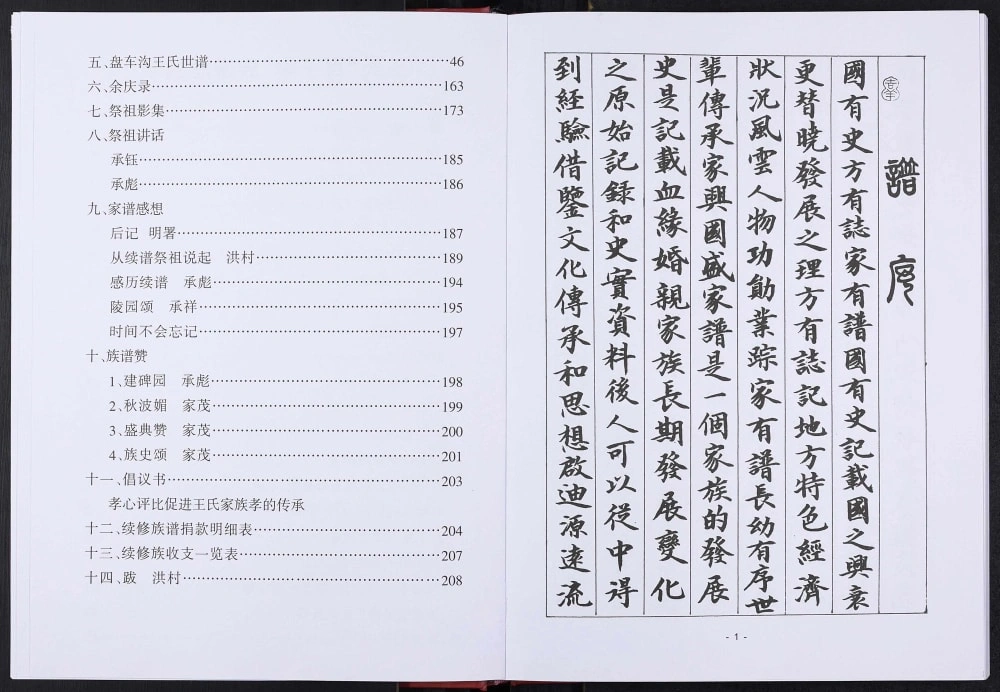 五、盘车沟王氏世谱……………………………46
六、余庆录……………………………163
七、祭祖影集……………………………173
八、祭祖讲话
承钰……………………………185
承彪……………………………186
九、家谱感想
后记 明署……………………………187
从续谱祭祖说起 洪村……………………………189
感历续谱 承彪……………………………194
陵园颂 承祥……………………………195
时间不会忘记……………………………197
十、族谱赞
1、建碑园 承彪……………………………198
2、秋波媚 家茂……………………………199
3、盛典赞 家茂……………………………200
4、族史颂 家茂……………………………201
十一、倡议书……………………………203
孝心评比促进王氏家族孝的传承
十二、续修族谱捐款明细表……………………………204
十三、续修族收支一览表……………………………207
十四、跋 洪村……………………………208
譜序
國有史方有誌家有譜國有史記載國之興衰
更替曉發展之理方有誌記地方特色經濟
狀況風雲人物功勛業踪家有譜長幼有序世
輩傳承家興國盛家譜是一個家族的發展
史是記載血緣婚親家族長期發展變化
之原始記録和史實資料後人可以從中得
到經驗借鑒文化傳承和思想啟迪源遠流
- 1 -